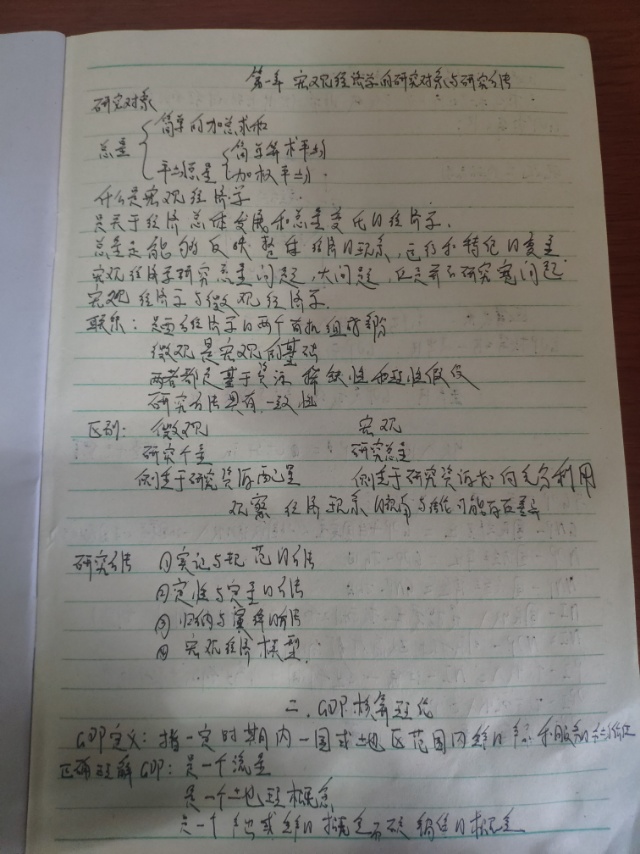 第一章 宏观经济学的研究对象与研究方法
研究对象
总量
简单的加总求和
平均总量
简单算术平均
加权平均
什么是宏观经济学
是关于经济总体发展和总量变化的经济学.
总量是能够反映整体经济的现象,运行和特征的变量
宏观经济学研究总量问题,大问题,但是并不研究
宏观经济学与微观经济学.
联系:是西方经济学的两个有机组成部分
微观是宏观的基础
两者都是基于资源稀缺性和理性假设
研究方法具有一致性
区别: 微观 宏观
研究个量 研究总量
侧重于研究资源配置 侧重于研究资源如何充分利用
观察经济现象的视角与结论可能有差异
研究方法 ①实证与规范的方法
②定性与定量的方法
③归纳与演绎的方法
④宏观经济模型.
二.GDP核算理论
GDP定义:指一定时期内一国或地区范围内生产的产品和服务的
正确理解GDP:是一个流量
是一个地理概念
是一个生产的概念而不是销售的概念